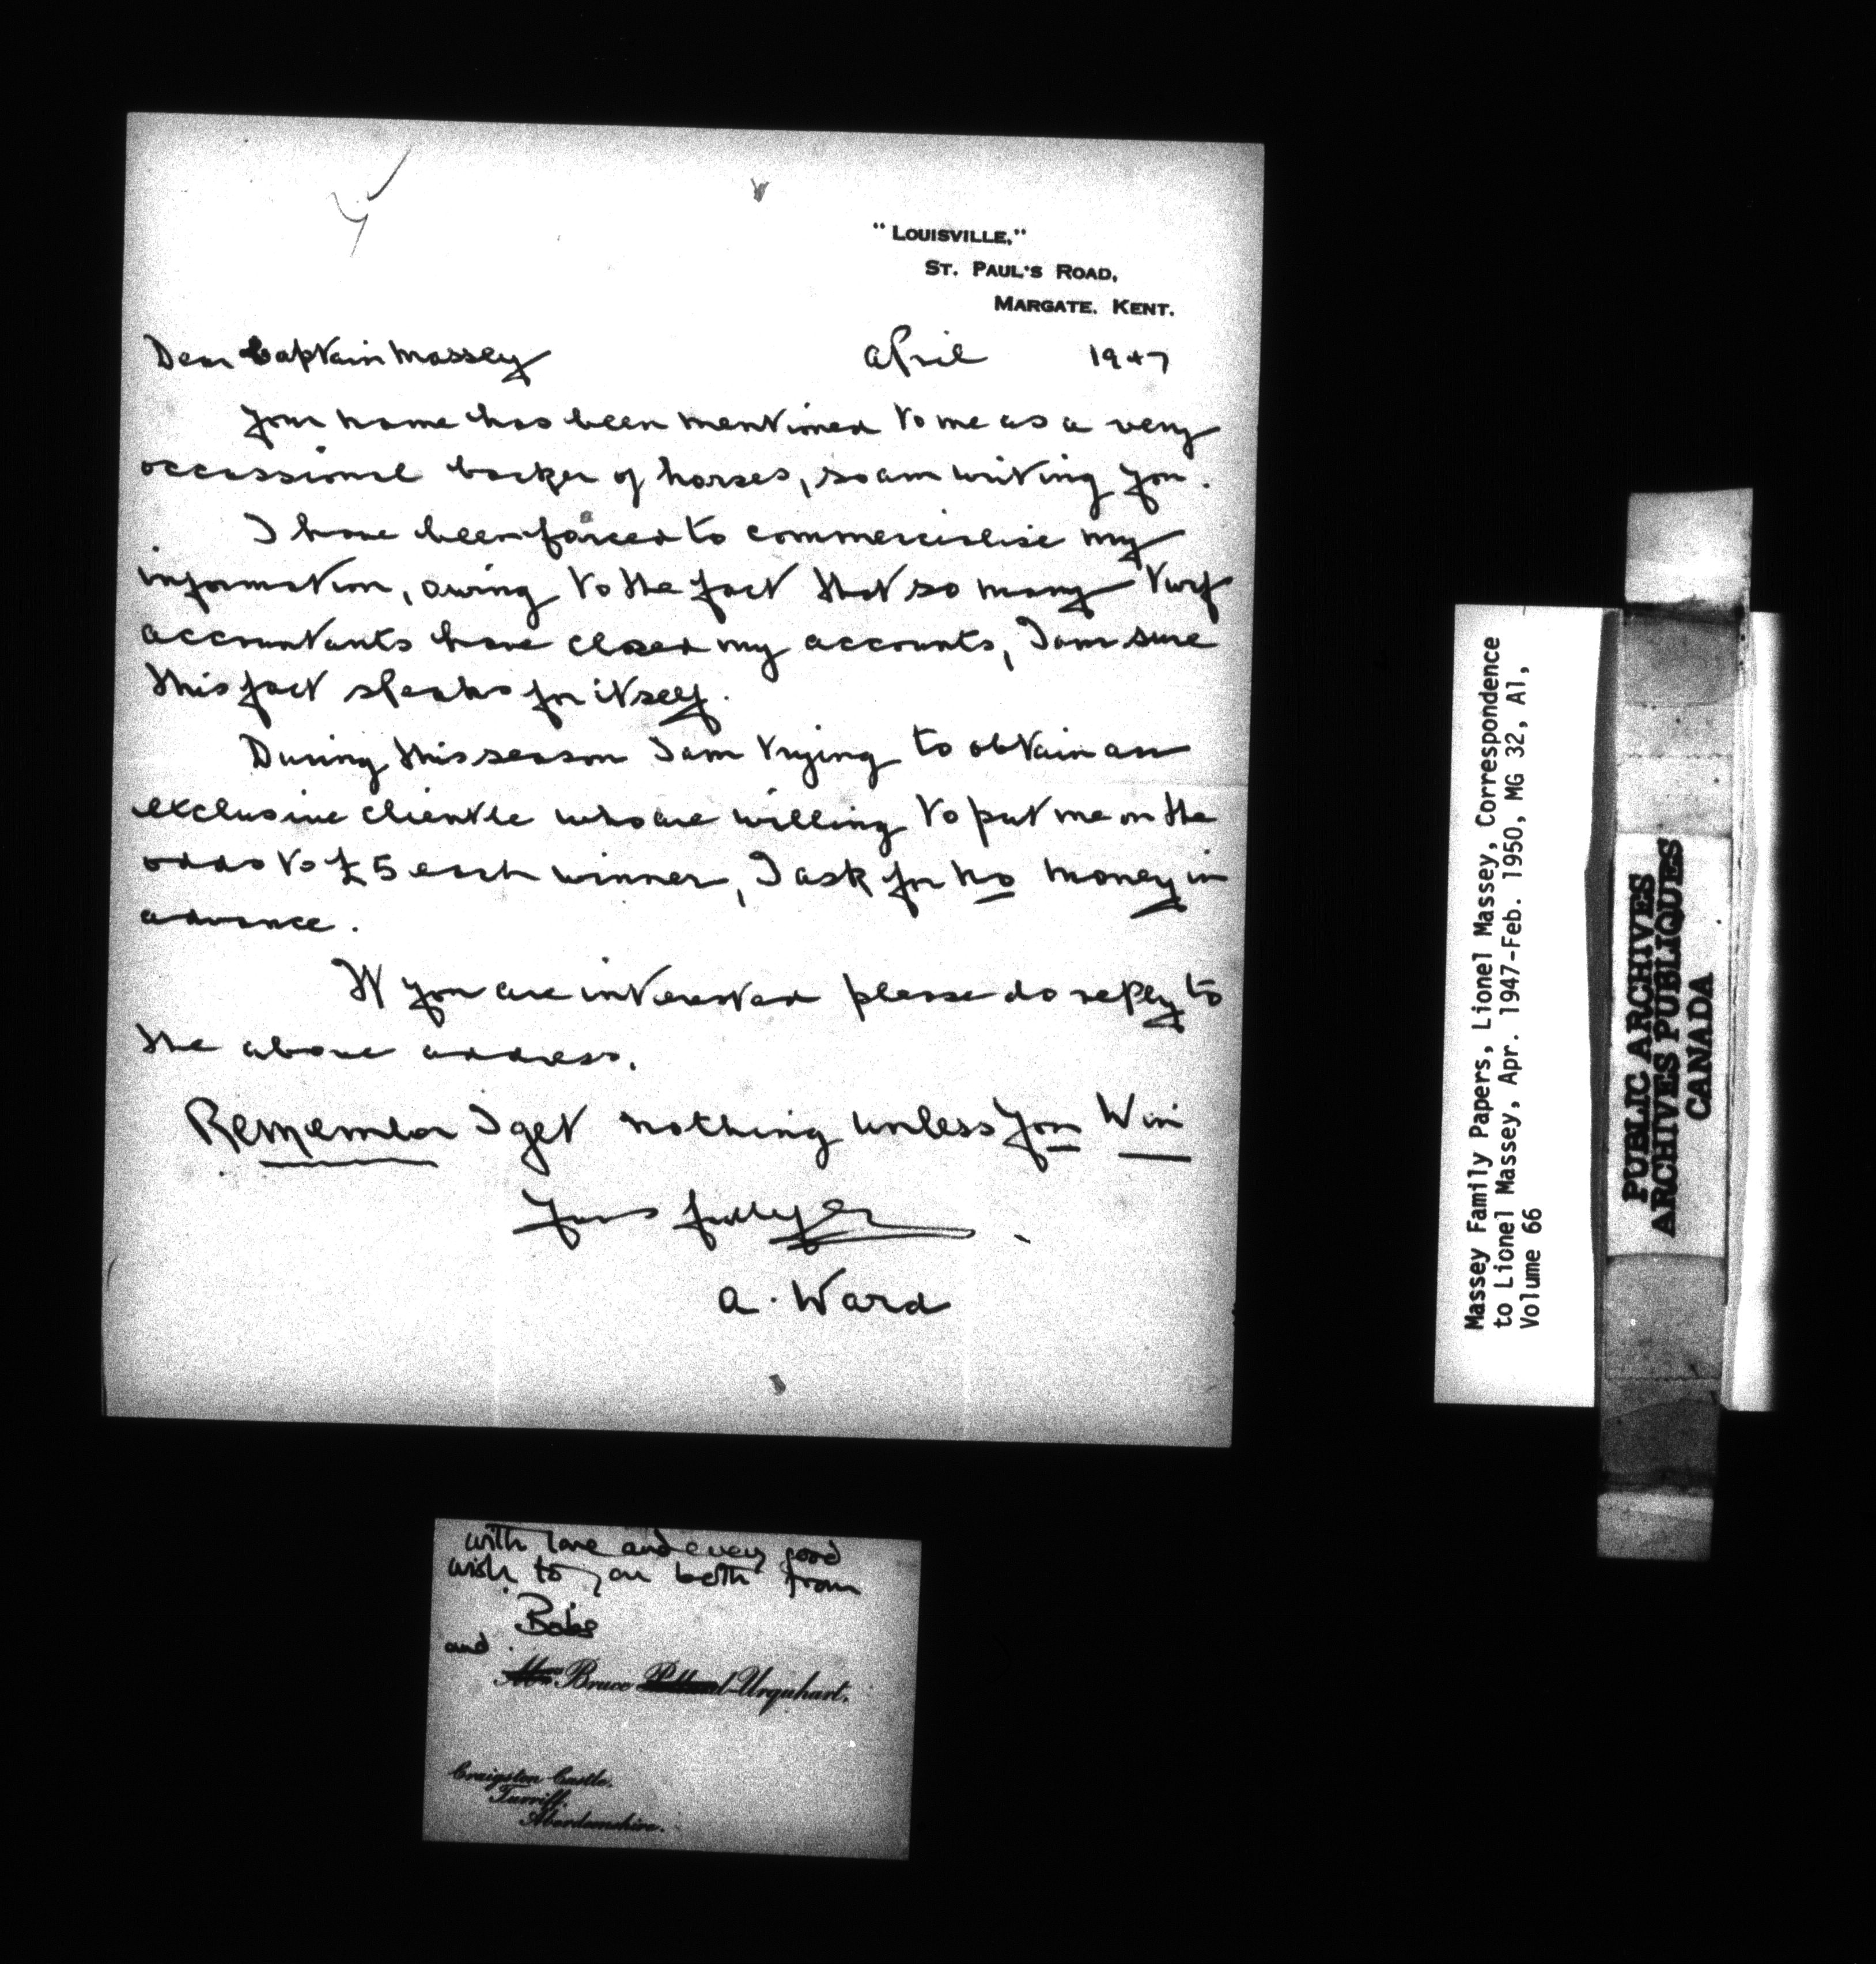 "LOUISVILLE,"
ST. PAUL'S ROAD,
MARGATE, KENT.
Dear Captain Massey April 1947
Your name has been mentioned to me as a very
occassional backer of horses, so am writing you.
I have been forced to commercialise my
information, owing to the fact that so many turf
accountants have closed my accounts, I am sure
this fact speaks for itself.
During this season I am trying to obtain an
exclusive clientle who are willing to put me on the
odds to £5 each winner, I ask for no money in
advance.
If you are interested please do reply to
the above address.
Remember I get nothing unless you Win
Yours
A. Ward
with love and every good
wish to you both from
Bobs
and
Bruce Urquhart.
Craigston Castle,
Turriff,
Aberdeenshire.
Massey Family Papers, Lionel Massey, Correspondence
to Lionel Massey, Apr. 1947-Feb. 1950, MG 32, A1,
Volume 66
PUBLIC ARCHIVES
ARCHIVES PUBLIQUES
CANADA